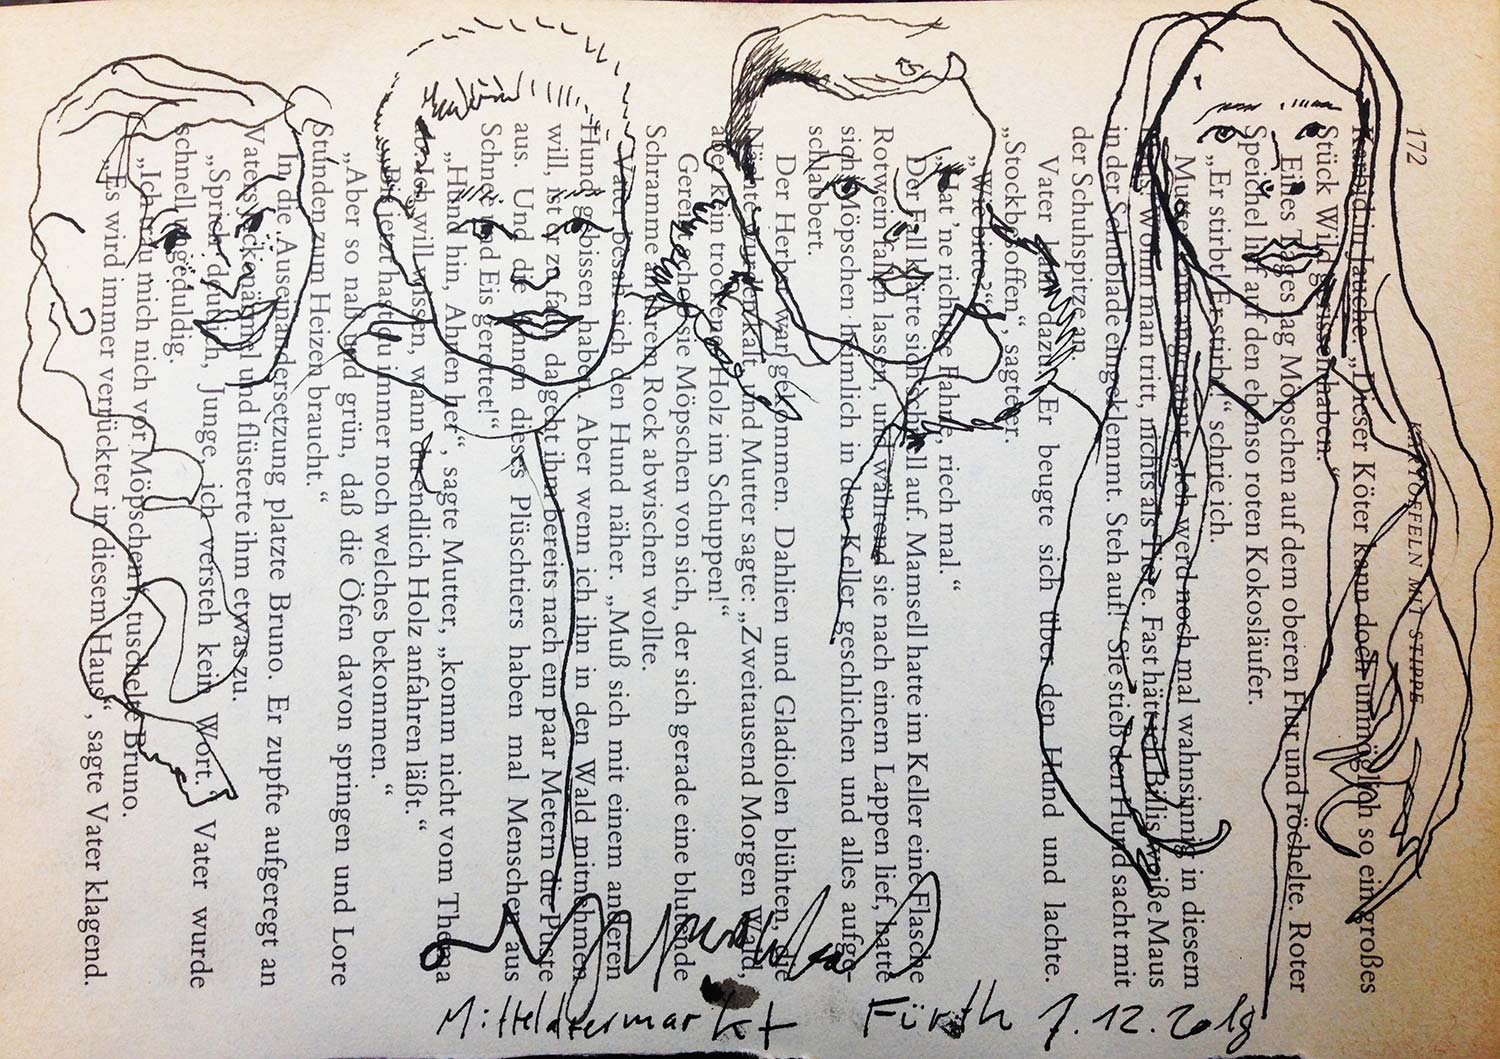 172 KARTOFFELN MIT STIPPE
Karbid in Jauche. „Dieser Köter kann doch unmöglich so ein großes
Stück Wild gerissen haben.“
Eines Tages lag Möpschen auf dem oberen Flur und röchelte. Roter
Speichel lief auf den ebenso roten Kokosläufer.
„Er stirbt! Er stirbt!“ schrie ich.
Mutter kam angerannt. „Ich werd noch mal wahnsinnig in diesem
Wohin man tritt, nichts als Tiere. Fast hätt sich Billis weiße Maus
in der Schublade eingeklemmt. Steh auf!“ Sie stieß den Hund sacht mit
der Schuhspitze an.
Vater kam dazu. Er beugte sich über den Hund und lachte.
„Stockbesoffen“, sagte er.
„Wie bitte?“
„Hat ’ne richtige Fahne, riech mal.“
Der Fall klärte sich schnell auf. Mamsell hatte im Keller eine Flasche
Rotwein fallen lassen, und während sie nach einem Lappen lief, hatte
sich Möpschen heimlich in den Keller geschlichen und alles aufge-
schlabbert.
Der Herbst war gekommen. Dahlien und Gladiolen blühten, die
Nächte wurden kalt, und Mutter sagte: „Zweitausend Morgen Wald,
aber kein trockenes Holz im Schuppen!“
Gereizt schob sie Möpschen von sich, der sich gerade eine blutende
Schramme an ihrem Rock abwischen wollte.
Vater besah sich den Hund näher. „Muß sich mit einem anderen
Hund gebissen haben. Aber wenn ich ihn in den Wald mitnehmen
will, ist er zu faul, da geht ihm bereits nach ein paar Metern die Puste
aus. Und die Ahnen dieses Plüschtiers haben mal Menschen aus
Schnee und Eis gerettet!“
„Hund hin, Ahnen her“, sagte Mutter, „komm nicht vom Thema
ab. Ich will wissen, wann du endlich Holz anfahren läßt.“
„Bis jetzt hast du immer noch welches bekommen.“
„Aber so naß und grün, daß die Öfen davon springen und Lore
Stunden zum Heizen braucht.“
In die Auseinandersetzung platzte Bruno. Er zupfte aufgeregt an
Vaters Jackenärmel und flüsterte ihm etwas zu.
„Sprich deutlich, Junge, ich versteh kein Wort.“ Vater wurde
schnell ungeduldig.
„Ich trau mich nich vor Möpschen“, tuschelte Bruno.
„Es wird immer verrückter in diesem Haus“, sagte Vater klagend.
Mittelaltermarkt Fürth 7.12.2018